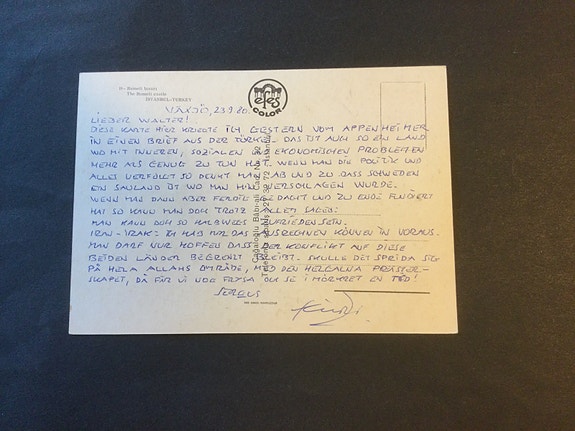 Rumeli hisarı
The Rumeli castle
ISTANBUL-TURKEY
efes
COLOR
VÄXJÖ, 23.9.80.
LIEBER WALTER!
DIESE KARTE HIER KRIEGTE ICH GESTERN VOM APPENHEIMER
IN EINEN BRIEF AUS DER TÜRKEI. DAS IST AUCH SO EIN LAND
WO MIT INNEREN, SOZIALEN & EKONOMISCHEN PROBLEMEN
MEHR ALS GENUG ZU TUN HAT. WENN MAN DIE POLITIK UND
ALLES VERFOLGT SO DENKT MAN AB UND ZU DASS SCHWEDEN
EIN SAULAND IST WO MAN HIN VERSCHLAGEN WURDE.
WENN MAN DANN ABER FERTIG GEDACHT UND ZU ENDE
HAT SO KANN MAN DOCH TROTZ ALLEM SAGEN:
MAN KANN DOCH SO HALBWEGS ZUFRIEDEN SEIN.
IRAN-IRAK: ICH HAB NUR DAS AUSRECHNEN KÖNNEN IN VORAUS.
MAN DARF NUR HOFFEN DASS DER KONFLIKT AUF DIESE
BEIDEN LÄNDER BEGRENZT BLEIBT. SKULLE DET SPRIDA SIG
PÅ HELA ALLAHS OMRÅDE, MED DEN HELGALNA PRÄSTER-
SKAPET, DÅ FÅR VI NOG FRYSA OCH SE I MÖRKRET EN TID!
SERVUS